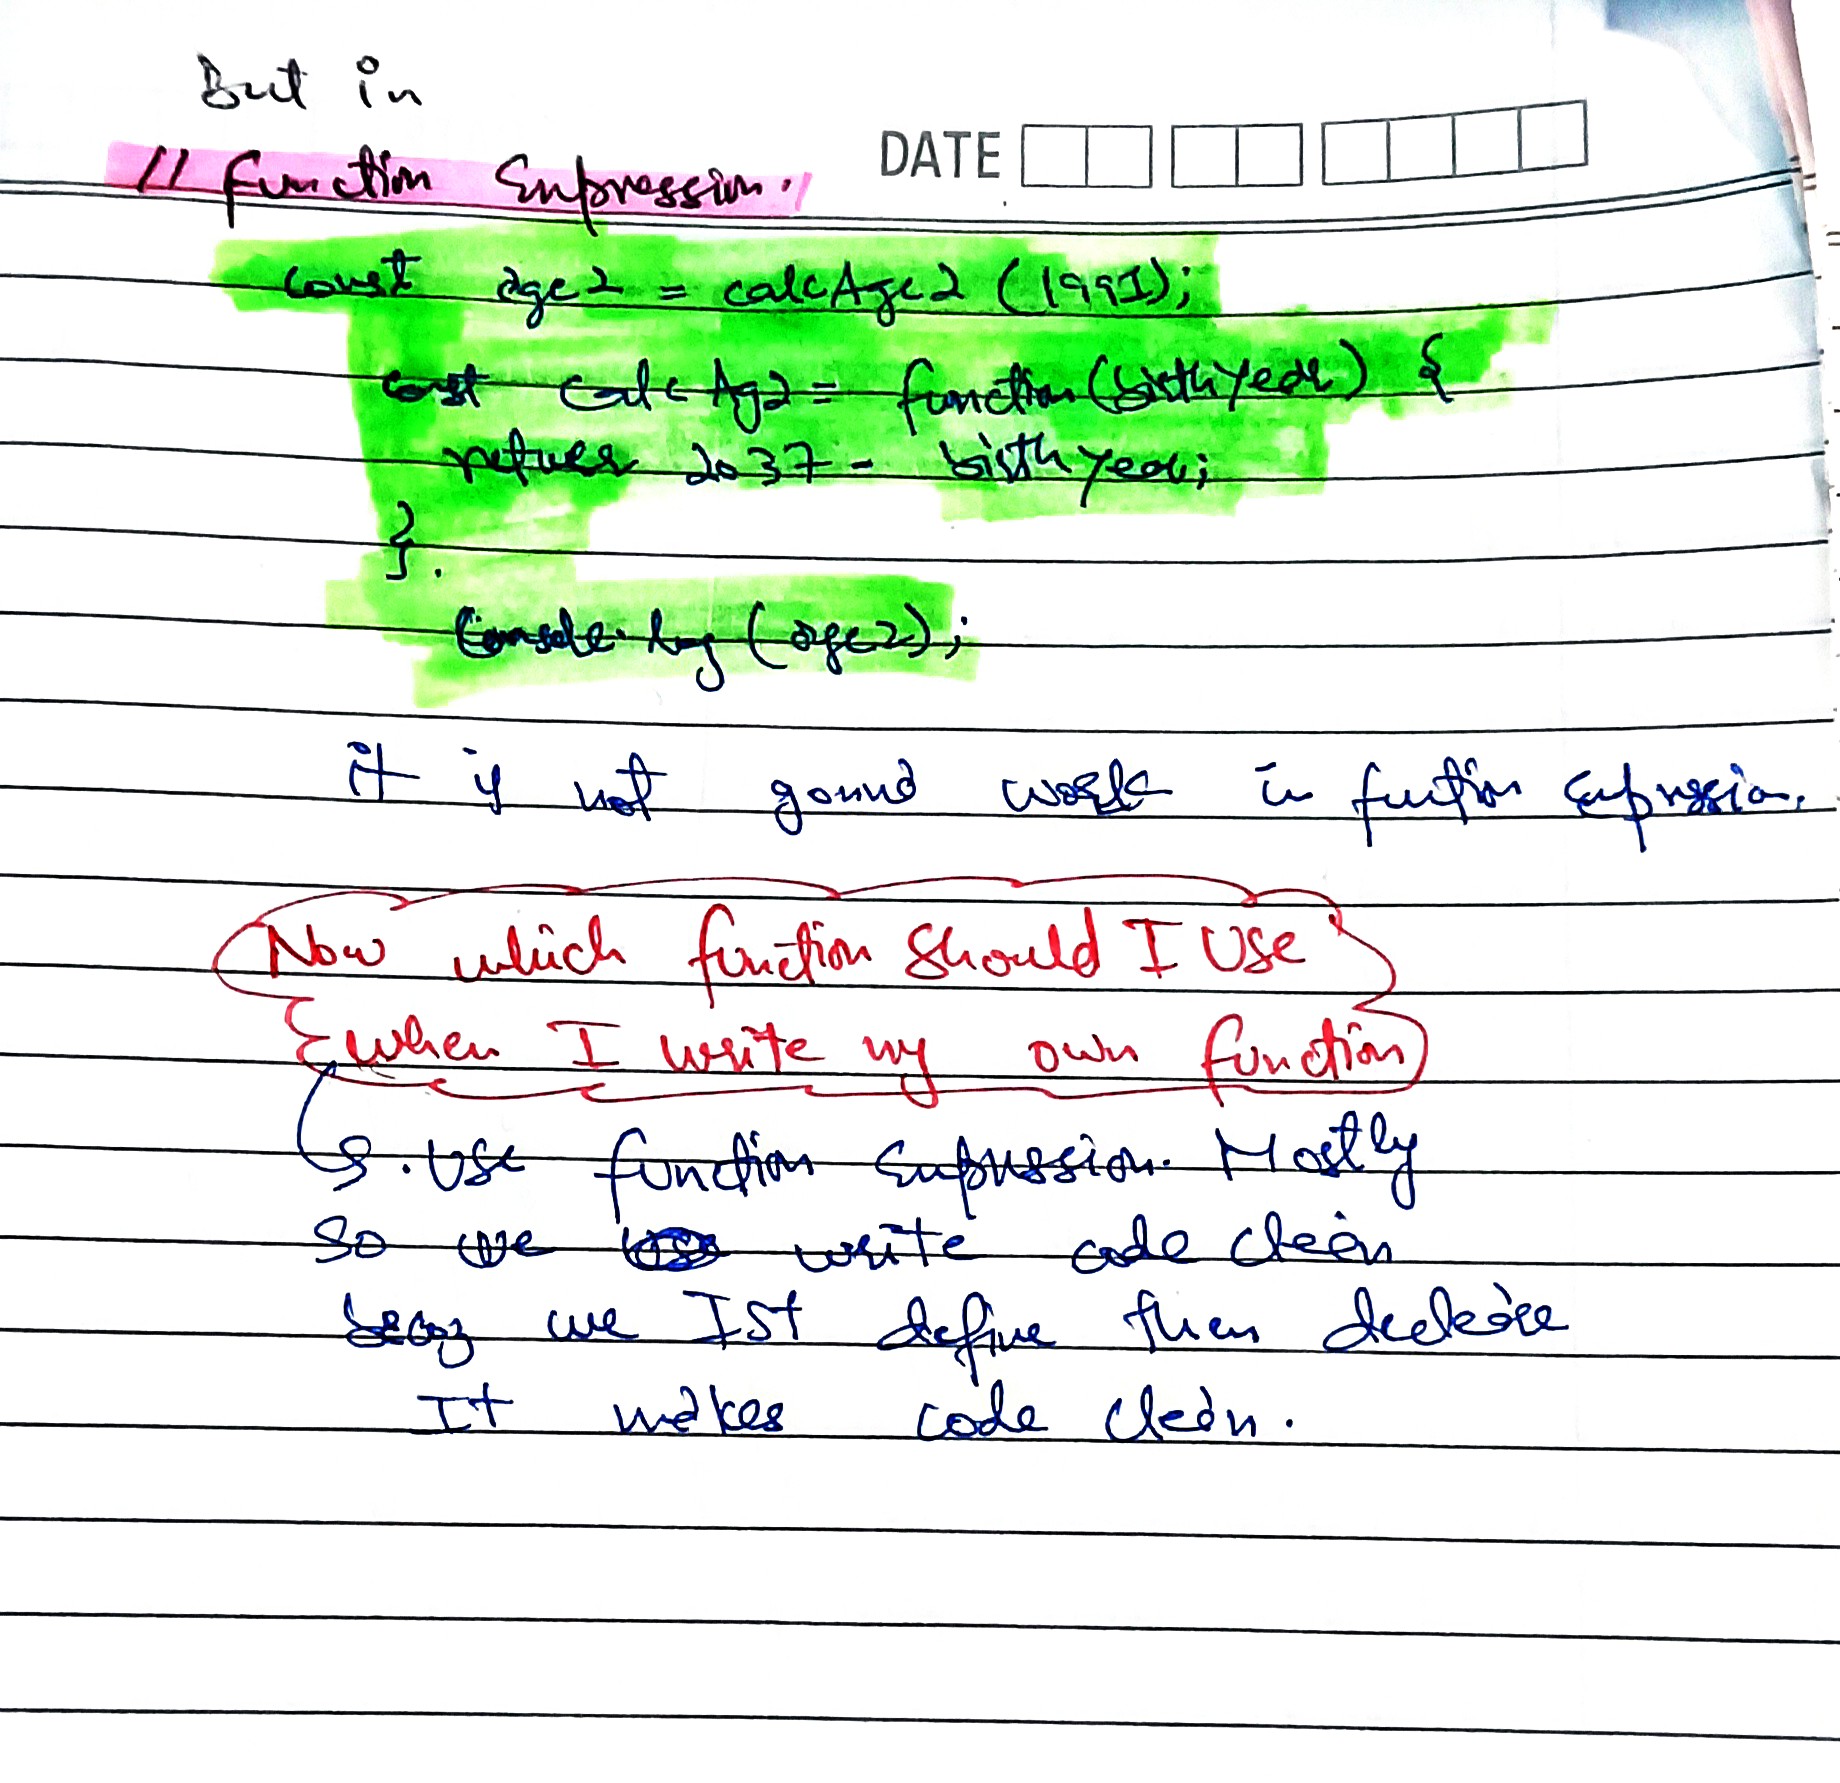 But in
DATE
// function Expression.
const age2 = calcAge2 (1991);
const calcAg2 = function(birthYear) {
return 2037 - birthYear;
}.
Console.log (age2);
it is not gonna work in function Expression.
Now which function Should I Use
when I write my own function
. Use function Expression. Mostly
So we write code clean
becoz we Ist define then declare
It makes code clean.